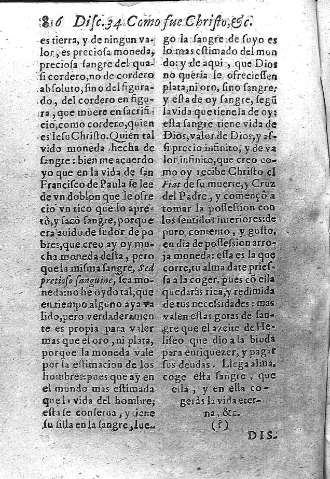 816 Disc. 34 Como fue Christo, &c.
es tierra, y de ningun va-
lor, es preciosa moneda,
preciosa sangre del qua-
si cordero, no de cordero
absoluto, sino del figura-
do, del cordero en figu-
ra, que muere en sacrifi-
cio, como cordero, quien
es Iesu Christo. Quiẽn tal
vido moneda hecha de
sangre: bien me acuerdo
yo que en la vida de san
Francisco de Paula se lee
de vn doblon que le ofre
cio vn rico que lo apre-
tò, y sacò sangre, porque
era auido de sudor de po
bres, que creo ay oy mu-
cha moneda desta, pero
que la misma sangre, Sed
pretioso sanguine, sea mo-
neda: no he oydo tal, que
en tiempo alguno aya va
lido, pero verdaderamen
te es propia para valer
mas que el oro, ni plata,
porque la moneda vale
por la estimacion de los
hombres: pues que ay en
el mundo mas estimada
que la vida del hombre,
esta se conserua, y tiene
su silla en la sangre, lue-
go la sangre de suyo es
lo mas estimado del mon
do: y de aqui, que Dios
no queria le ofreciessen
plata, ni oro, sino sangre;
y esta de oy sangre, segũ
la vida que tiene la de oy:
esta sangre tiene vida de
Dios, valor de Dios, y as-
si precio infinito, y de va-
lor infinito, que creo co-
mo oy recibe Christo el
Fiat de su muerte, y Cruz
del Padre, y començò a
tomar la possession con
los sentidos interiores: de
puro, contento, y gusto,
en dia de possession arro-
ja moneda: ella es la que
corre, tu alma date prie-
ssa a la coger, pues cõ ella
quedaràs rica, y redimida
de tus necessidades: mas
valen estas gotas de san-
gre que el azeite de He-
liseo que dio a la biuda
para enriquezer, y pagar
sus deudas. Llega alma,
coge esta sangre, que
ella, y en ella co-
geràs la vida eter-
na, &c.
(§)
DIS-